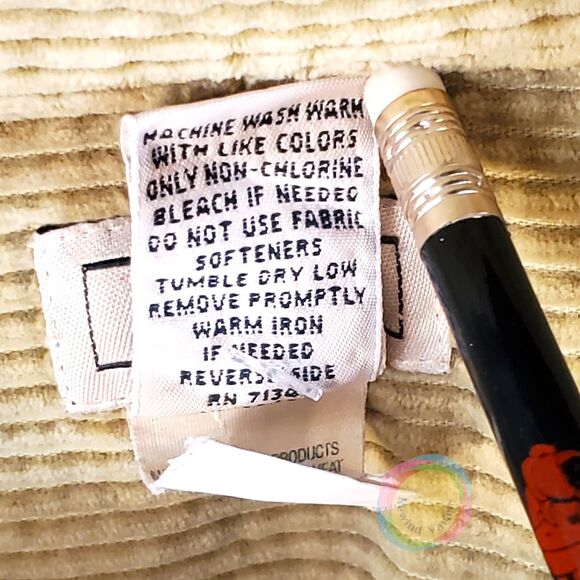 MACHINE WASH WARM
WITH LIKE COLORS
ONLY NON-CHLORINE
BLEACH IF NEEDED
DO NOT USE FABRIC
SOFTENERS
TUMBLE DRY LOW
REMOVE PROMPTLY
WARM IRON
IF NEEDED
REVERSE SIDE
RN
PRODUCTS